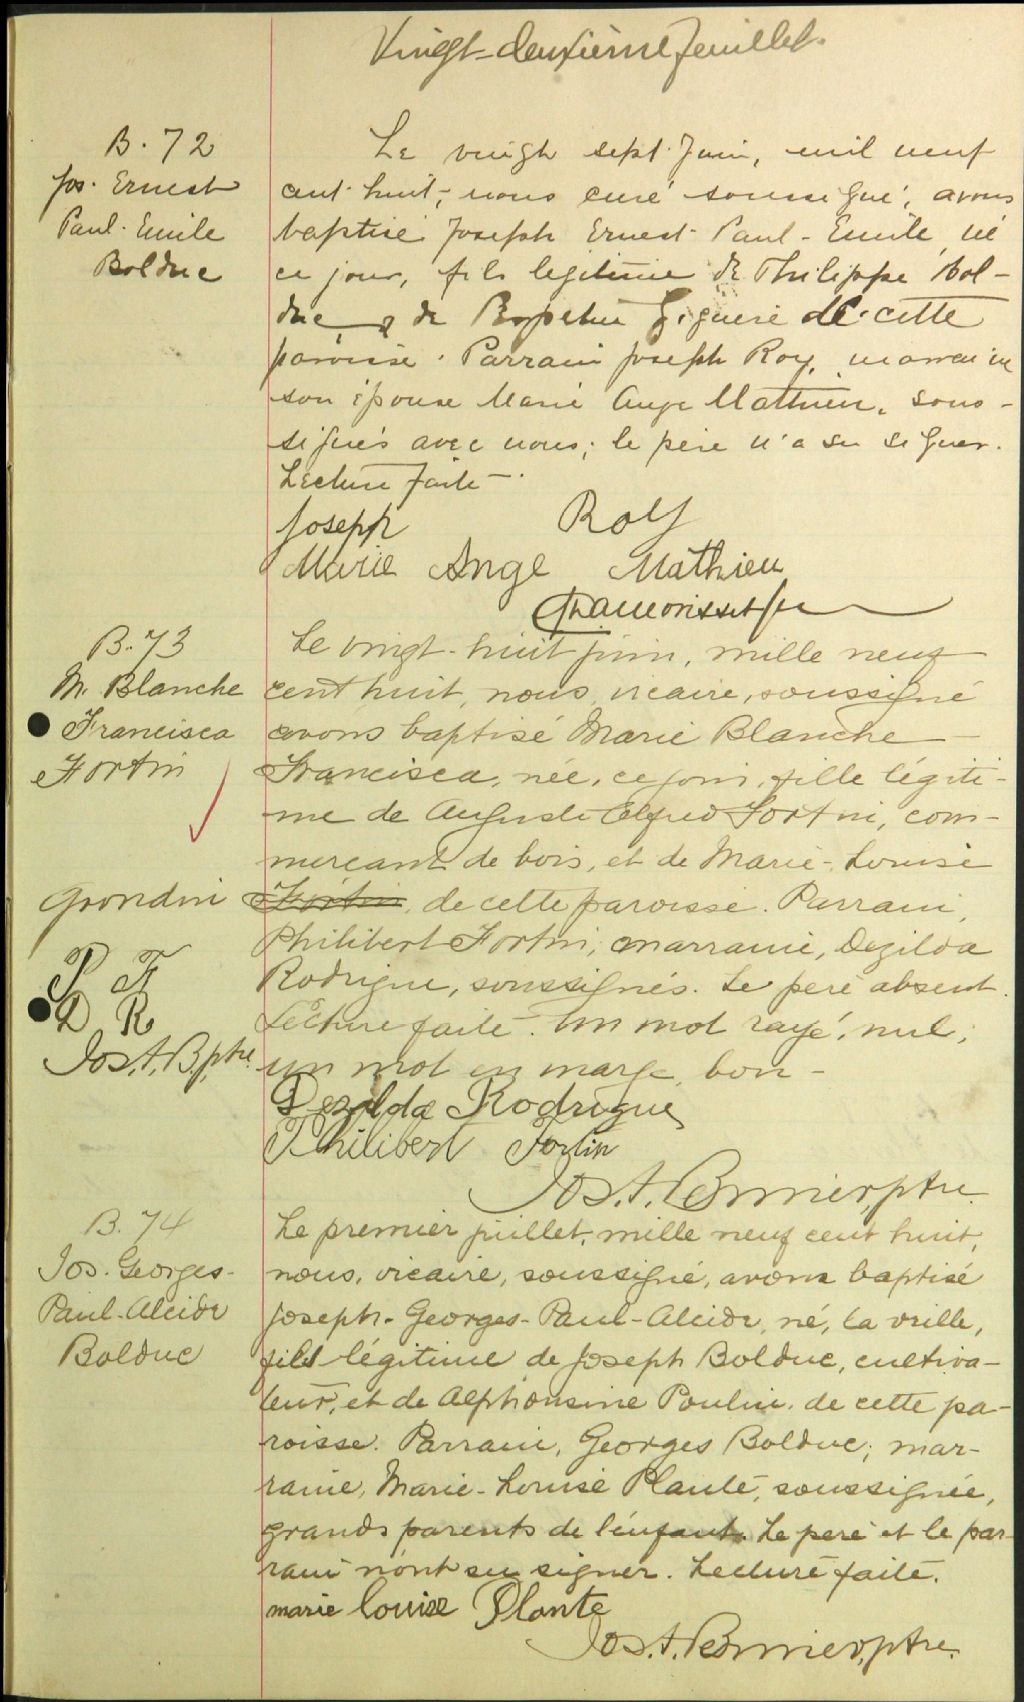 Vingt-deuxième feuillet.
B. 72
Jos. Ernest
Paul-Emile
Bolduc
Le vingt sept Juin, mil neuf
cent huit, nous curé soussigné, avons
baptisé Joseph Ernest Paul-Emile, né
ce jour, fils legitime de Philippe Bol-
duc, & de Giguère de cette
paroisse. Parrain Joseph Roy, marraine
son épouse Marie Ange Mathieu, sous-
signés avec nous; le père n'a su signer.
Lecture faite.
Joseph Roy
Marie Ange Mathieu
B. 73
M. Blanche
Francisca
Fortin
Le vingt-huit juin, mille neuf
cent huit, nous, vicaire, soussigné
avons baptisé Marie Blanche
Francisca, née, ce jour, fille légiti-
me de Auguste Alfred Fortin, com-
merçant de bois, et de Marie-Louise
Grondin
Fortin, de cette paroisse. Parrain,
Philibert Fortin, marraine, Dezilda
Rodrigue, soussignés. Le père absent.
Lecture faite. Un mot rayé, nul;
un mot en marge, bon-
P F
D R
Jos. A. B. ptre.
Dezilda Rodrigue
Philibert Fortin
Jos. A. Bernier, ptre.
B. 74
Jos. Georges-
Paul-Alcide
Bolduc
Le premier juillet, mille neuf cent huit,
nous, vicaire, soussigné, avons baptisé
Joseph-Georges-Paul-Alcide, né, la veille,
fils légitime de Joseph Bolduc, cultiva-
teur, et de Alphonsine Poulin, de cette pa-
roisse. Parrain, Georges Bolduc; mar-
raine, Marie-Louise Plante, soussignée,
grands parents de l'enfant. Le père et le par-
rain n'ont su signer. Lecture faite.
marie louise Plante
Jos. A. Bernier, ptre.